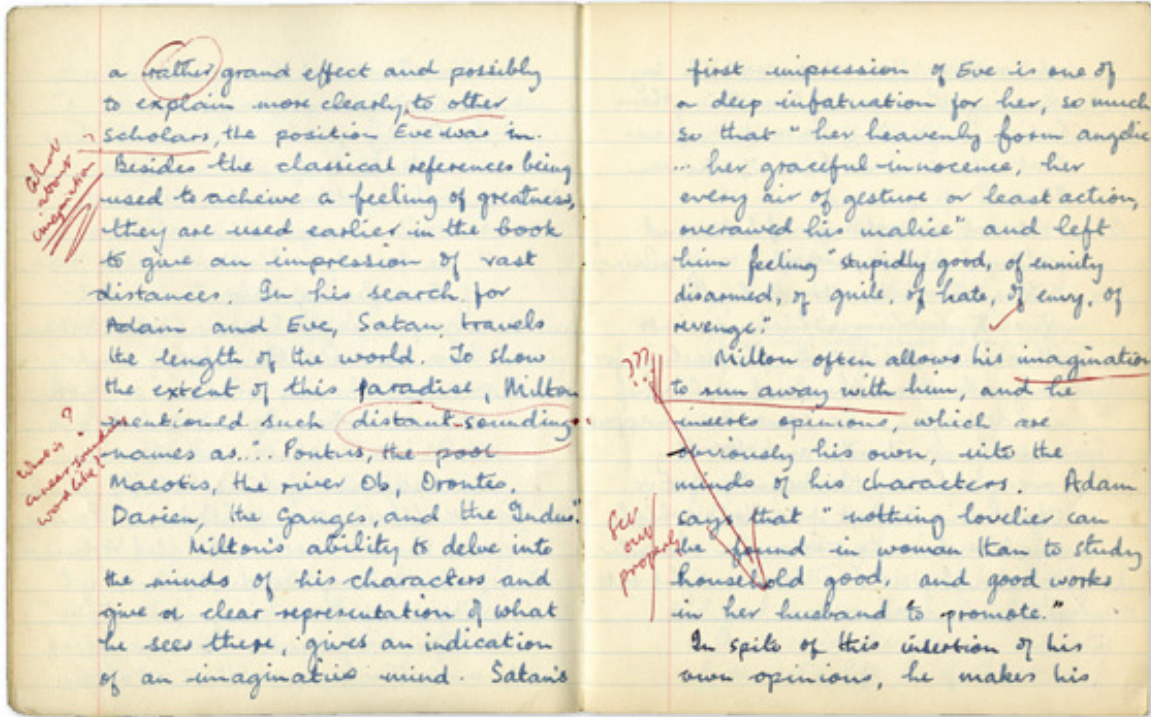 a rather grand effect and possibly
to explain more clearly, to other
scholars, the position Eve was in.
Besides the classical references being
used to acheive a feeling of greatness,
they are used earlier in the book
to give an impression of vast
distances. In his search for
Adam and Eve, Satan travels
the length of the world. To show
the extent of this paradise, Milton
mentioned such distant-sounding
names as ".. Pontus, the pool
Maeotis, the river Ob, Orontes,
Darien, the Ganges, and the Indus."
Milton's ability to delve into
the minds of his characters and
give a clear representation of what
he sees there, gives an indication
of an imaginative mind. Satan's
?
what
about
imagination
?
a near sounding
word like?
first impression of Eve is one of
a deep infatuation for her, so much
so that "her heavenly form angelic
... her graceful innocence, her
every air of gesture or least action,
overawed his malice" and left
him feeling "stupidly good, of enmity
disarmed, of guile, of hate, of envy, of
revenge."
Milton often allows his imagination
to run away with him, and he
inserts opinions, which are
obviously his own, into the
minds of his characters. Adam
says that "nothing lovelier can
be found in woman than to study
household good, and good works
in her husband to promote."
In spite of this insertion of his
own opinions, he makes his
???
Set
out
properly